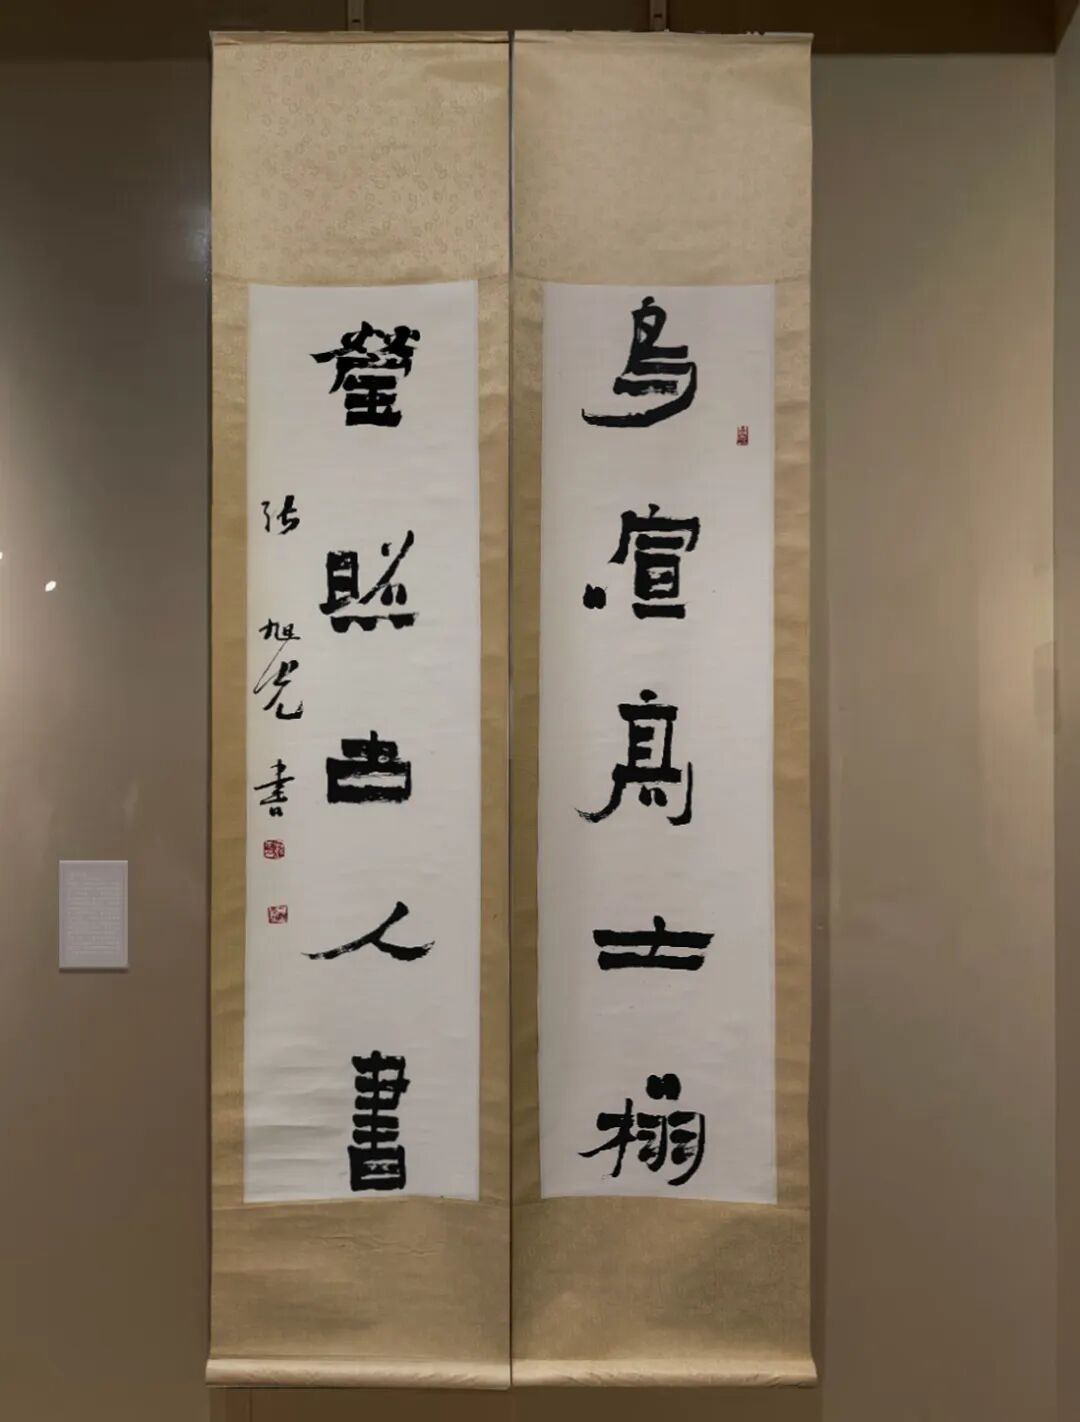 鳥喧高士榻
瑩照古人書
張旭光書